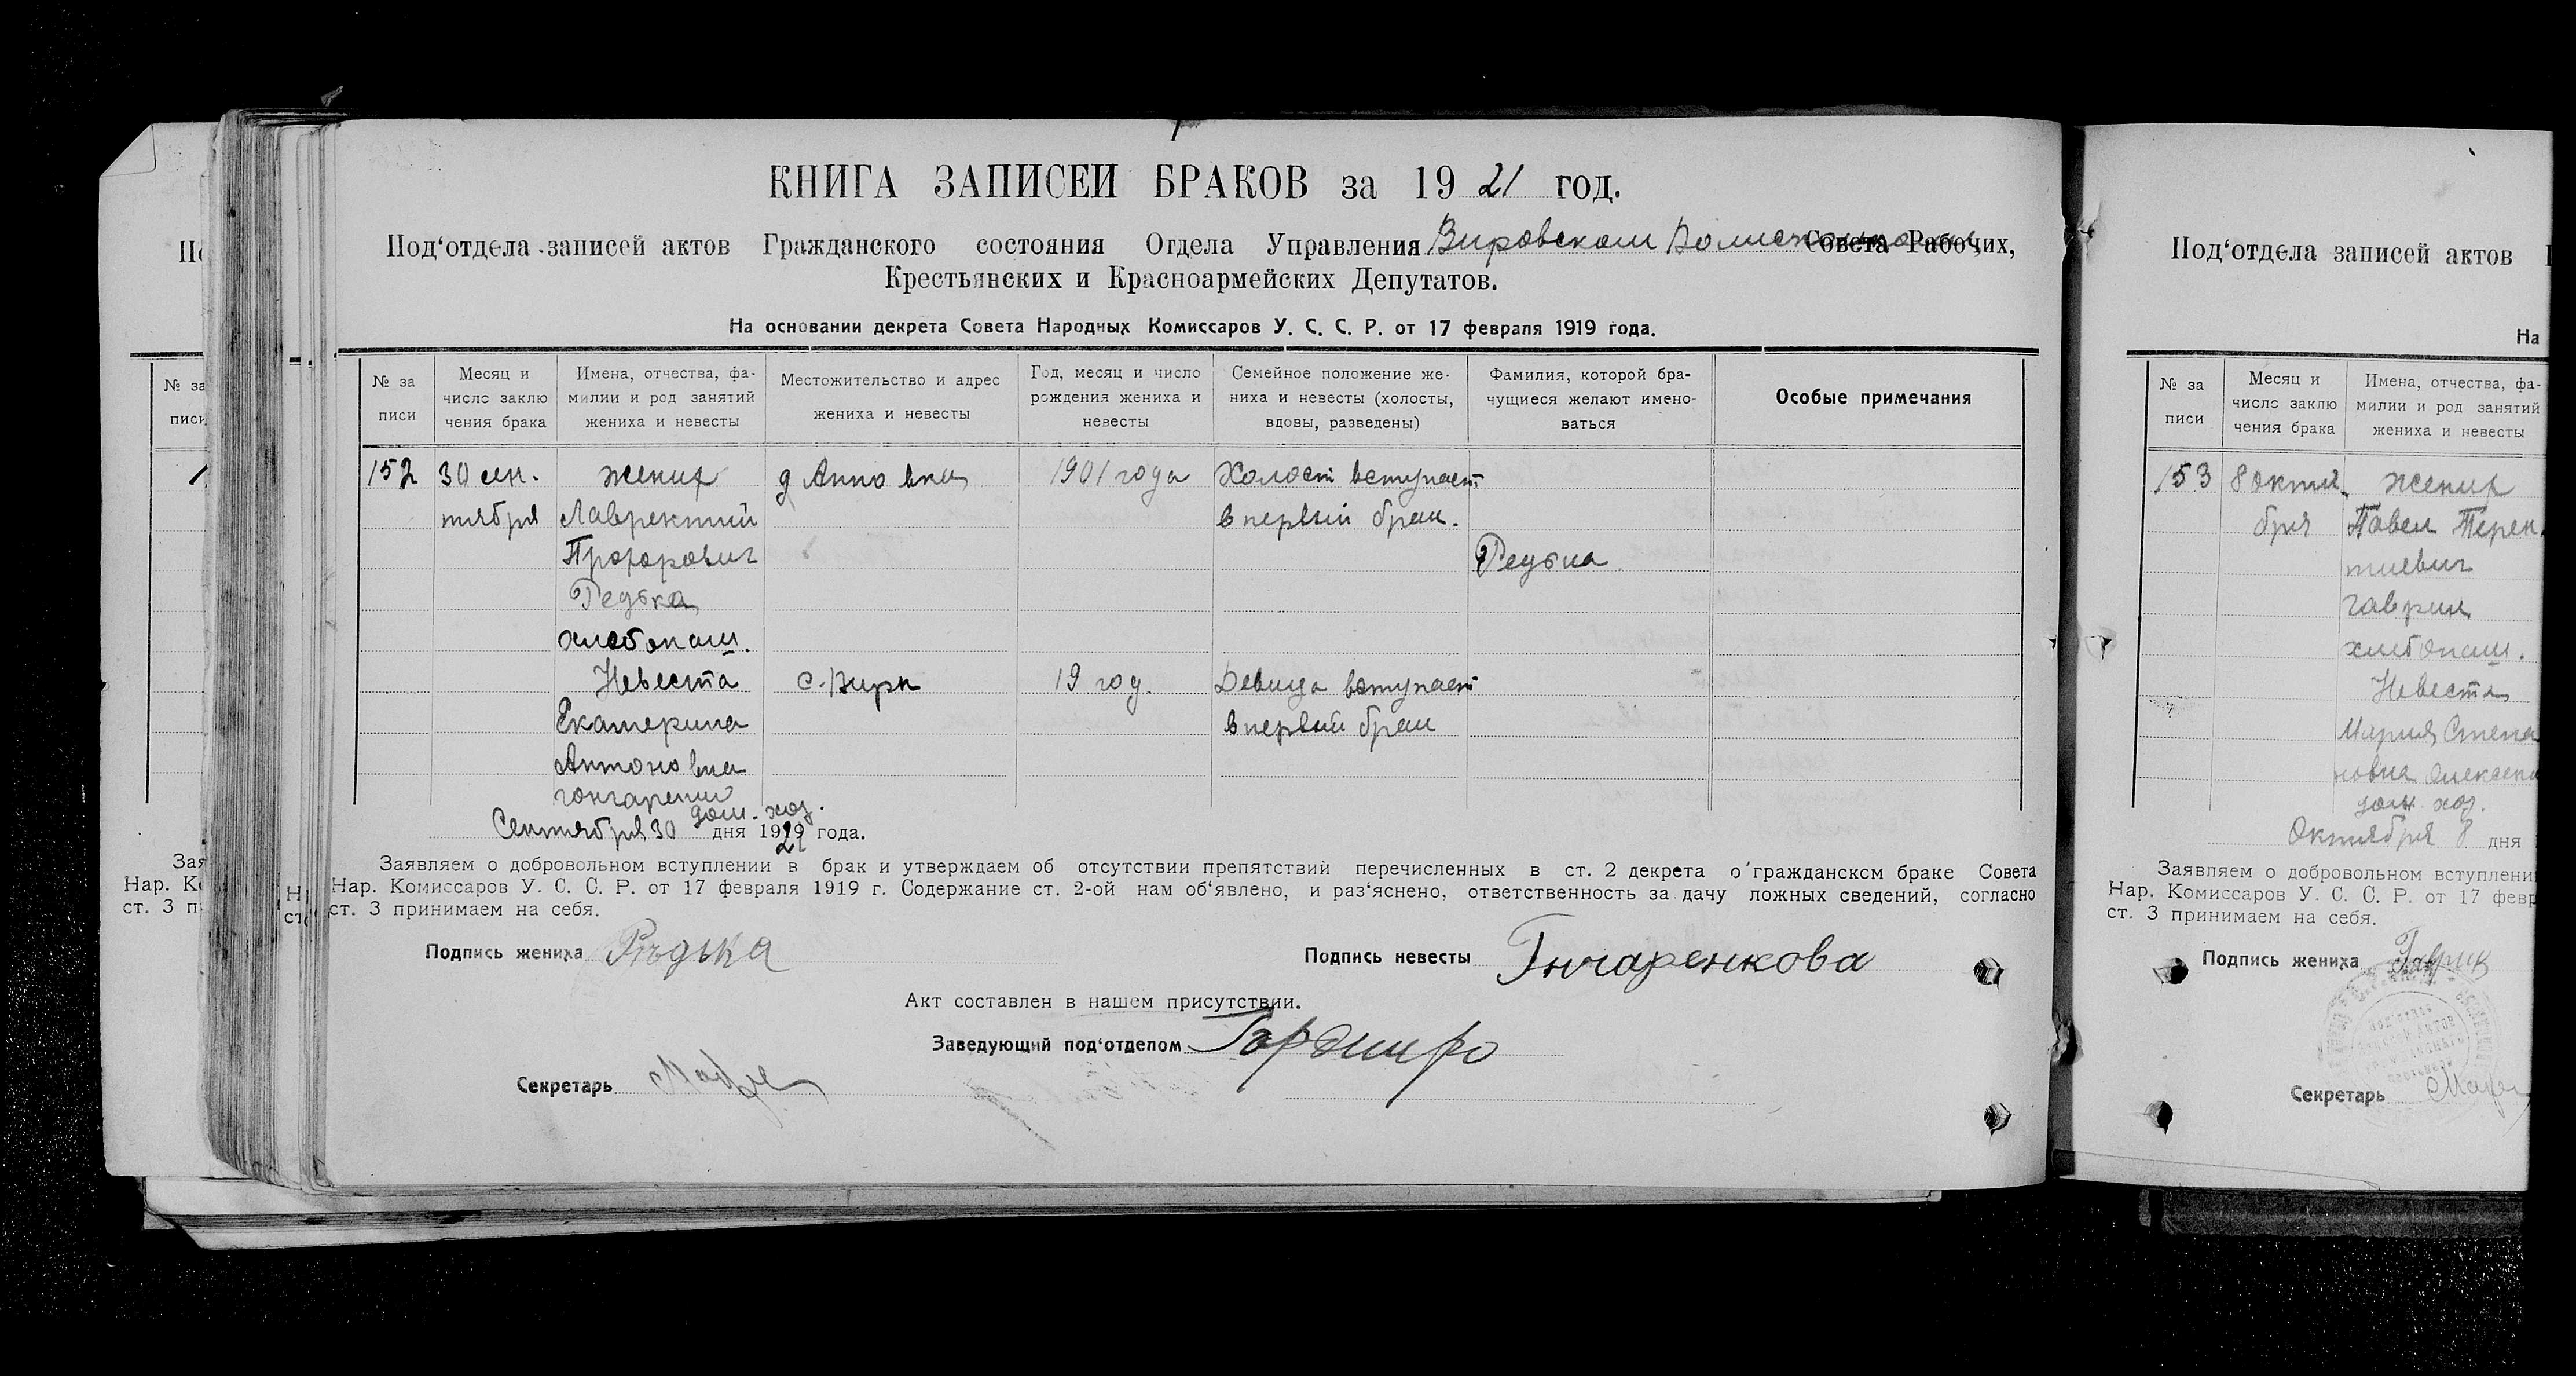 КНИГА ЗАПИСЕЙ БРАКОВ за 1921 год.
Под‘отдела записей актов Гражданского состояния Отдела Управления Вировском Совета Рабочих,
Крестьянских и Красноармейских Депутатов.
На основании декрета Совета Народных Комиссаров У. С. С. Р. от 17 февраля 1919 года.
№ за
писи
Месяц и
число заклю
чения брака
Имена, отчества, фа-
милии и род занятий
жениха и невесты
Местожительство и адрес
жениха и невесты
Год, месяц и число
рождения жениха и
невесты
Семейное положение же-
ниха и невесты (холосты,
вдовы, разведены)
Фамилия, которой бра-
чущиеся желают имено-
ваться
Особые примечания
152 30 сен. жених д Анновка 1901 года Холост вступает
тября Лаврентий в первый брак.
Прохорович Редька
Редька
хлебопаш.
Невеста с. Виры 19 год. Девица вступает
Екатерина в первый брак
Антоновна
гончаренко
дом. хоз.
Сентября 30 дня 1921 года.
Заявляем о добровольном вступлении в брак и утверждаем об отсутствии препятствий перечисленных в ст. 2 декрета о гражданском браке Совета
Нар. Комиссаров У. С. С. Р. от 17 февраля 1919 г. Содержание ст. 2-ой нам об‘явлено, и раз‘яснено, ответственность за дачу ложных сведений, согласно
ст. 3 принимаем на себя.
Подпись жениха Редька Подпись невесты Гнчаренкова
Акт составлен в нашем присутствии.
Заведующий под‘отделом
Секретарь
Под‘отдела записей актов
На
№ за
писи
Месяц и
число заклю
чения брака
Имена, отчества, фа-
милии и род занятий
жениха и невесты
153 8 октя жених
бря Павел Терен
тиевич
Гаврик
хлебопаш.
Невеста
Мария Степа
новна
дом. хоз.
Октября 8 дня
Заявляем о добровольном вступлени
Нар. Комиссаров У. С. С. Р. от 17 февр
ст. 3 принимаем на себя.
Подпись жениха Гаврик
Секретарь